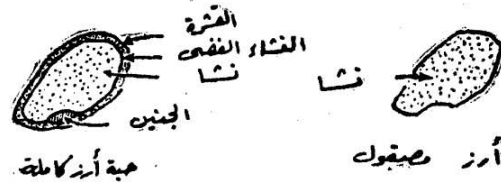 القشرة
الغشاء الفضى
نشا
الجنين
حبة أرز كاملة
نشا
أرز مصقول